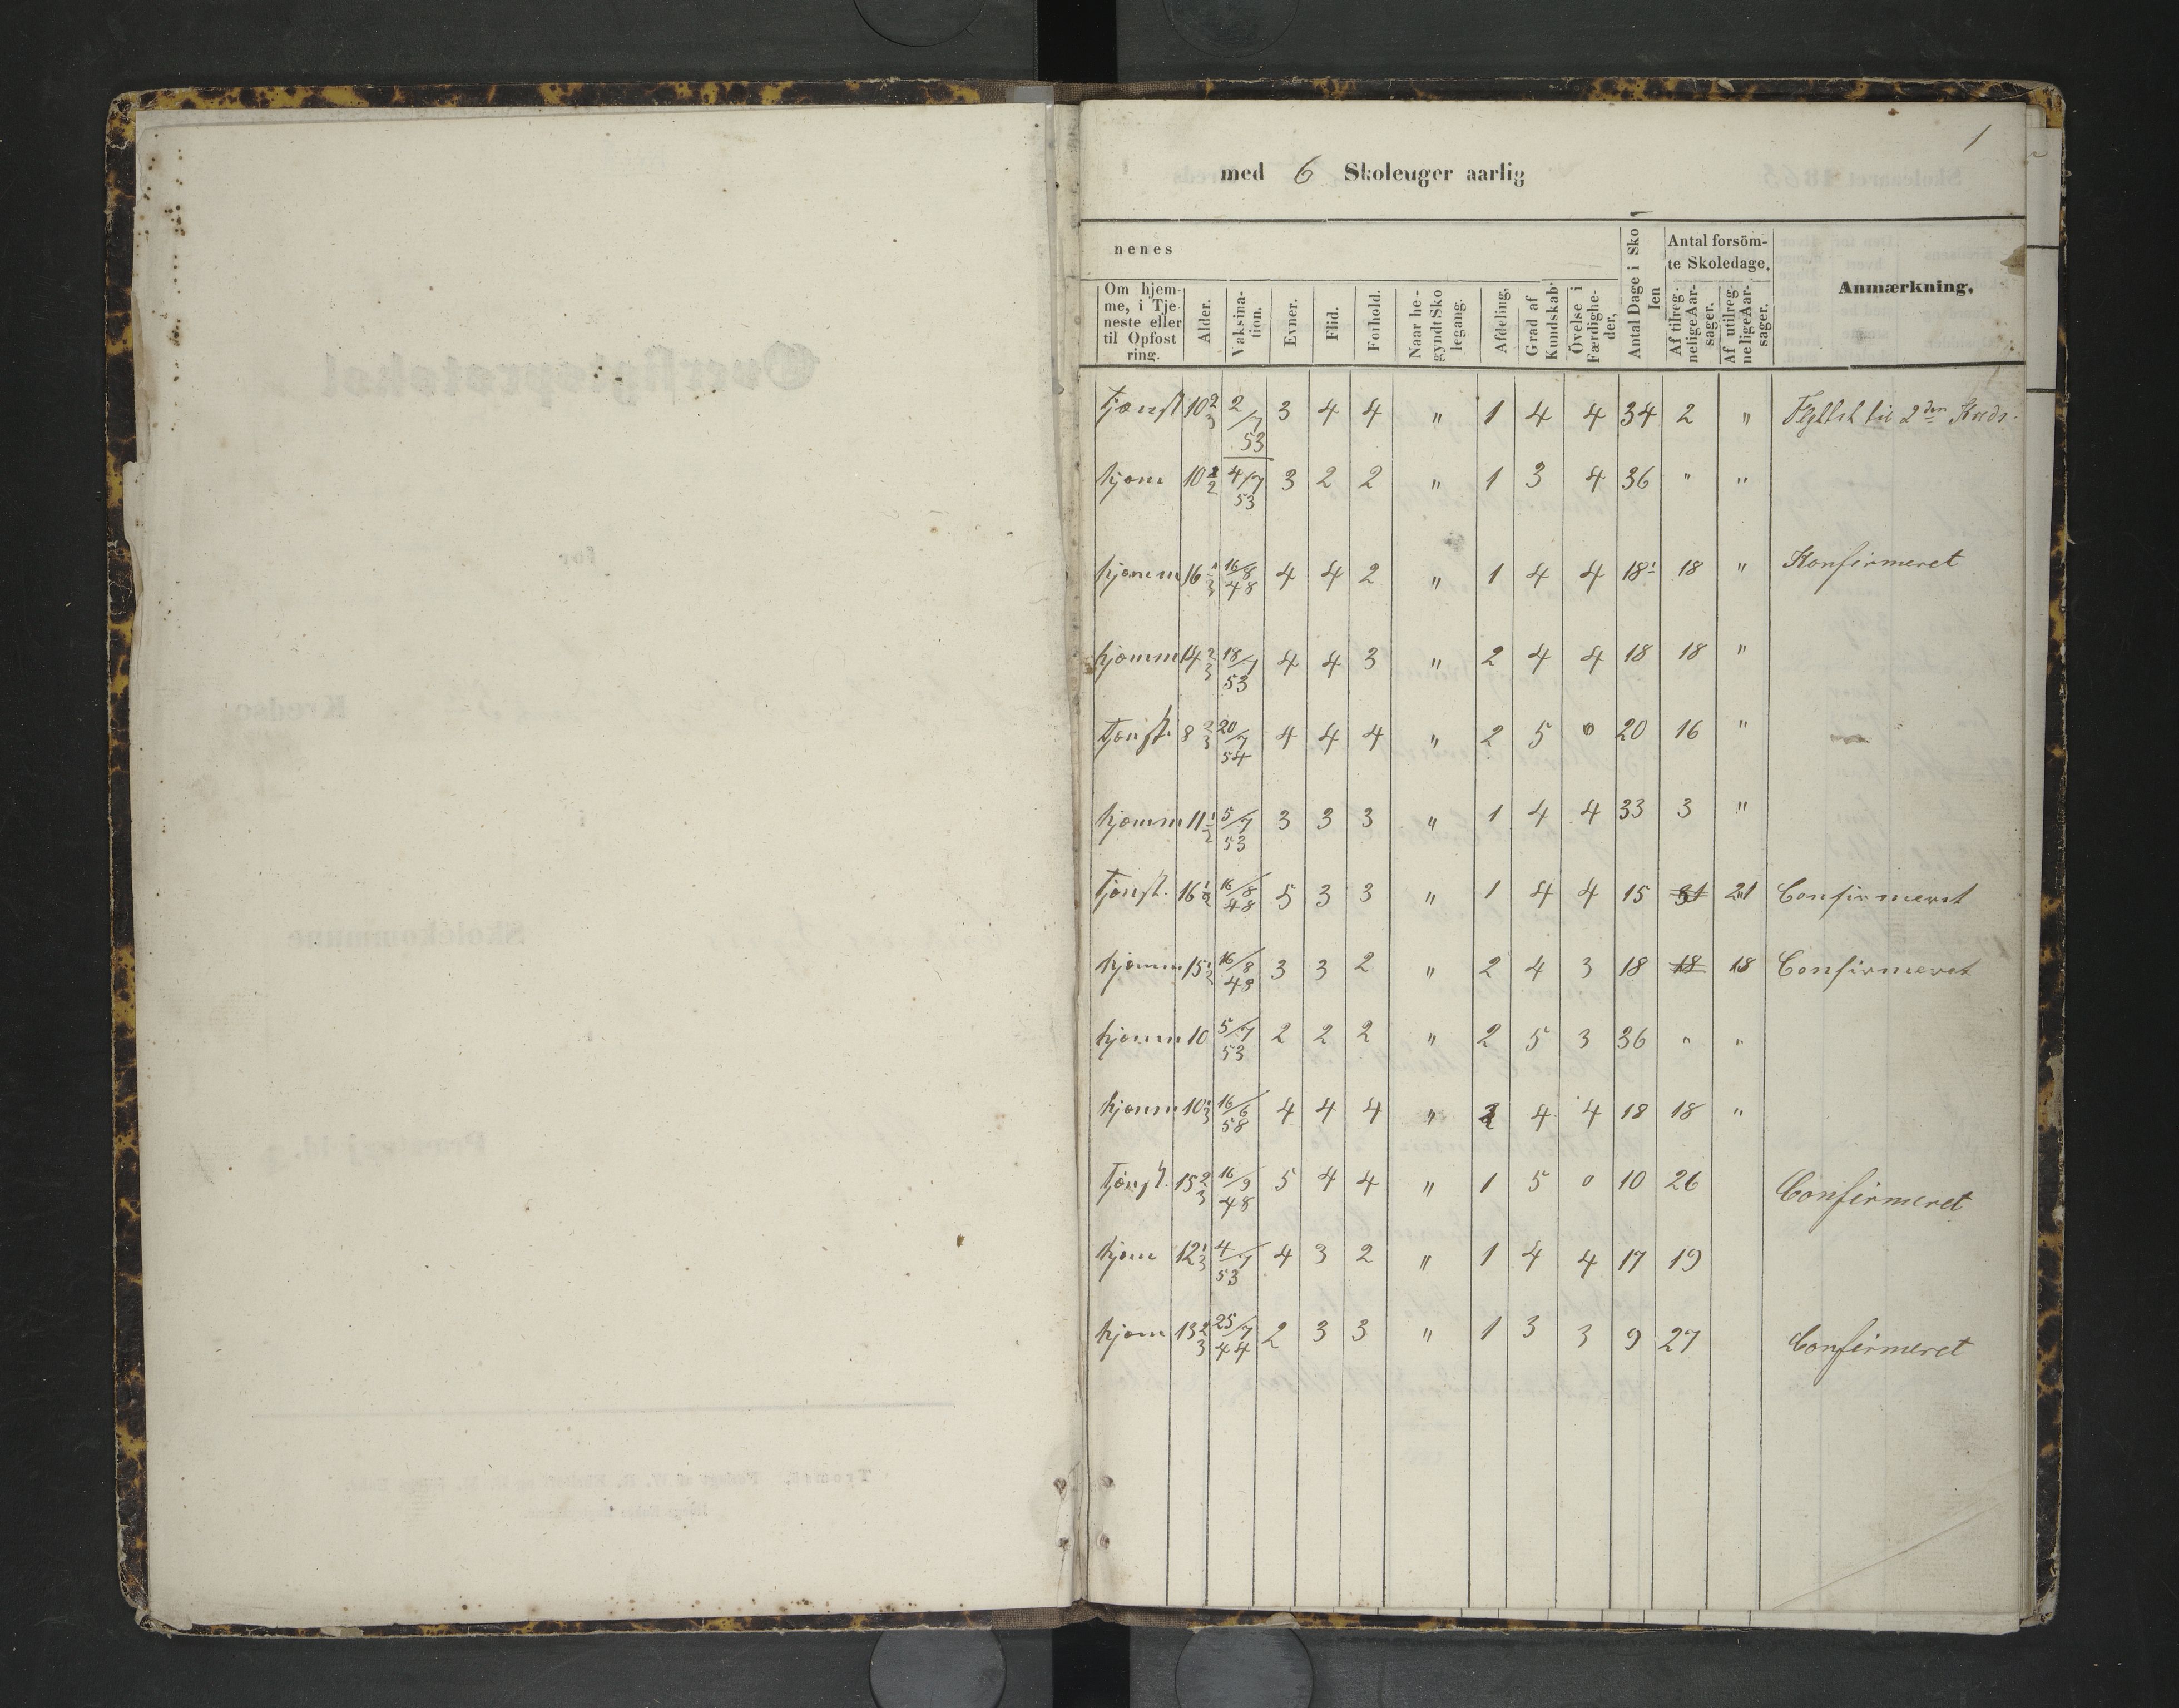 1
med 6 Skoleuger aarlig
nenes
Om hjemme, i Tjeneste eller til Opfostring.
Alder.
Vaksination.
Evner.
Flid.
Forhold.
Naar begyndt Skolegang.
Afdeling,
Grad af Kundskab
Övelse i Færdigheder,
Antal Dage i Skolen
Antal forsömte Skoledage.
Af tilregnelige Aarsager.
Af utilregnelige Aarsager.
Anmærkning,
Tjenst 10 2/3 2/7 53 3 4 4 " 1 4 4 34 2 " Flyttet til 2den Kreds.
hjem 10 1/2 4/7 53 3 2 2 " 1 3 4 36 " "
hjemm 16 1/3 16/8 48 4 4 2 " 1 4 4 18 18 " Konfirmeret
hjemm 14 2/3 18/7 53 4 4 3 " 2 4 4 18 18 "
Tjenst. 8 2/3 20/7 54 4 4 4 " 2 5 0 20 16 "
hjemm 11 1/2 5/7 53 3 3 3 " 1 4 4 33 3 "
Tjenst. 16 1/2 16/8 48 5 3 3 " 1 4 4 15 21 Confirmeret
hjemm 15 1/2 16/8 48 3 3 2 " 2 4 3 18 18 18 Confirmeret
hjemm 10 5/7 53 2 2 2 " 2 5 3 36 " "
hjemm 10 1/3 16/6 58 4 4 4 " 2 4 4 18 18 "
Tjenst. 15 2/3 16/9 48 5 4 4 " 1 5 0 10 26 Confirmeret
hjem 12 1/3 4/7 53 4 3 2 " 1 4 4 17 19
hjem 13 2/3 25/7 44 2 3 3 " 1 3 3 9 27 Confirmeret